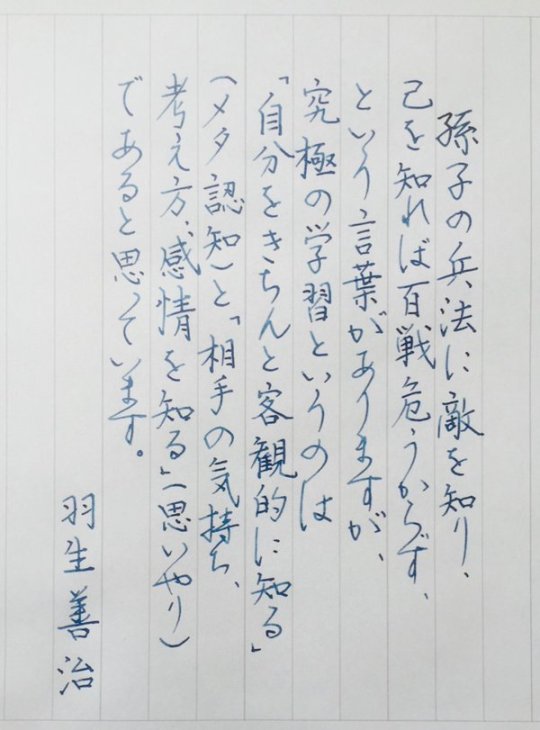 孫子の兵法に敵を知り、
己を知れば百戦危うからず、
という言葉がありますが、
究極の学習というのは
「自分をきちんと客観的に知る」
(メタ認知)と「相手の気持ち、
考え方、感情を知る」(思いやり)
であると思っています。
羽生善治